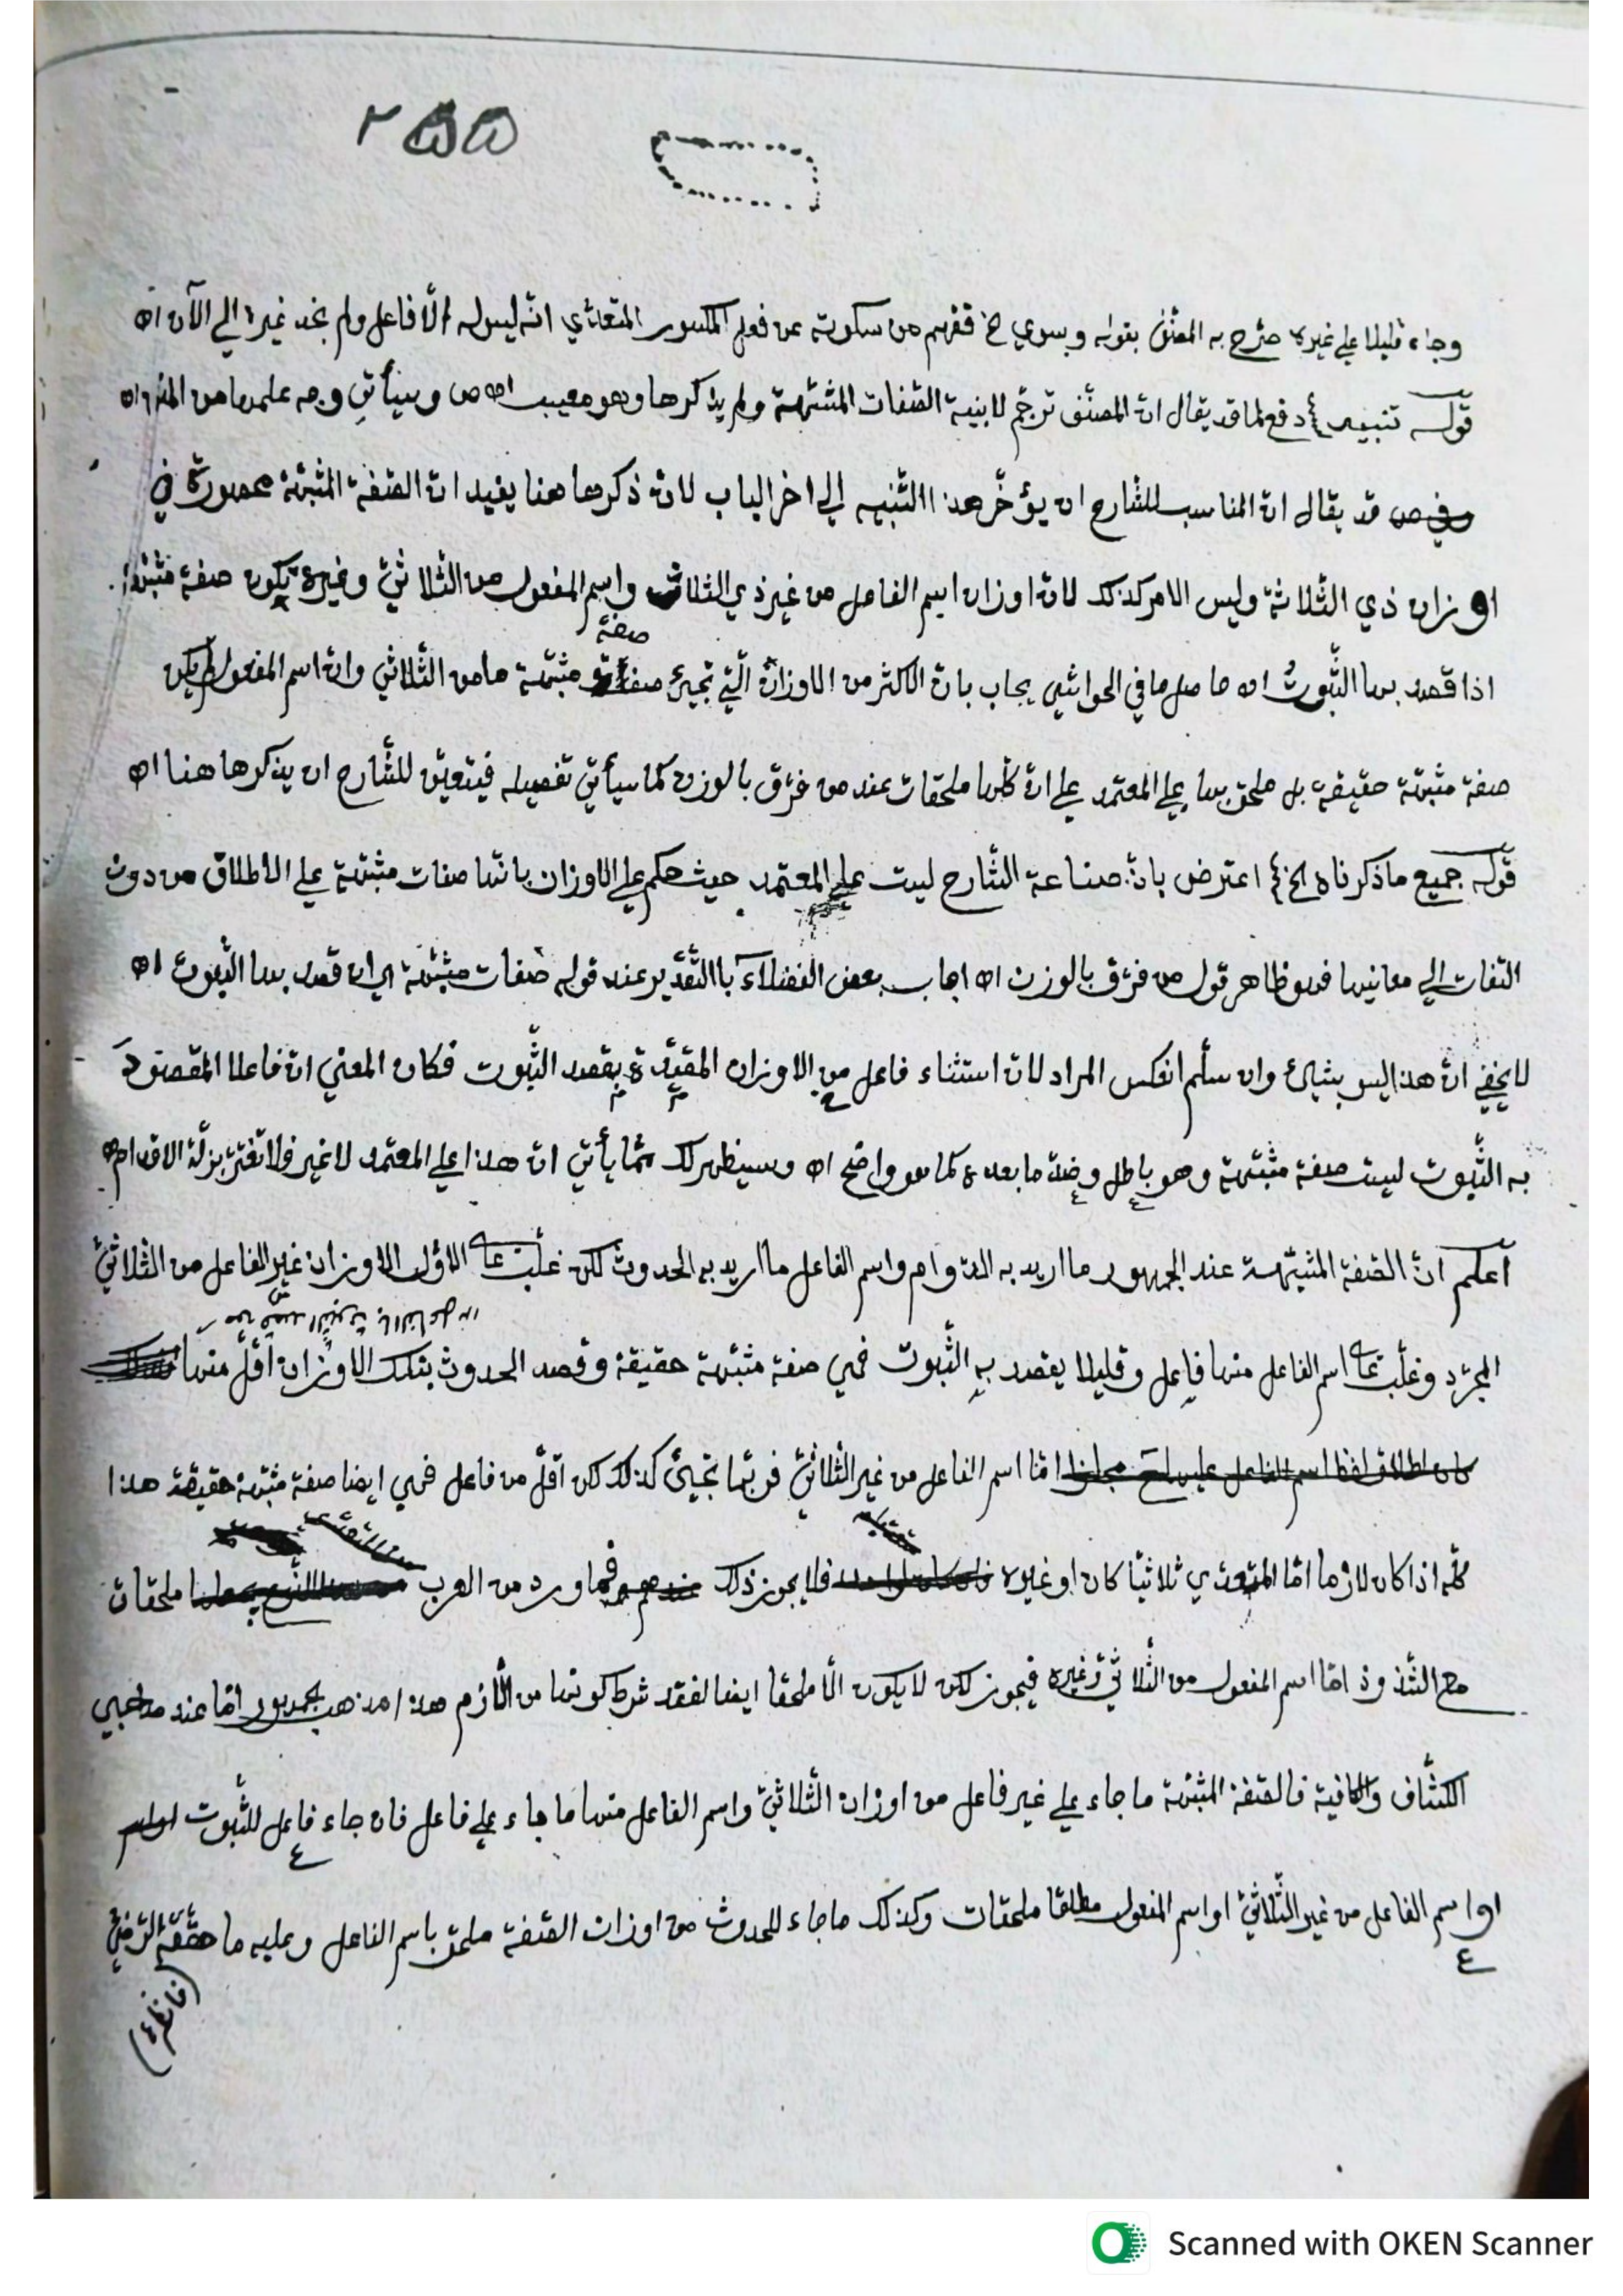 ٢٥٥
وجاء قليلا علي غيره صرّح به المصنّف بقوله وبسوي الخ ففهم من سكوته عن فعل المكسور المتعدّي انّه ليس له الّا فاعل ولم نجد غيره الي الآن اه
قوله تنبيه دفع لما قد يقال انّ المصنّف ترجم لابنية الصّفات المشبّهة ولم يذكرها وهو معيب اه ص وسيأتي وجه علمها من المتن اه
وفي ص قد يقال انّ المناسب للشّارح ان يؤخّر هذا التّنبيه الي اخر الباب لانّ ذكرها هنا يفيد انّ الصّفة المشبّهة محصورة في
اوزان ذي الثّلاثة وليس الامر كذلك لانّ اوزان اسم الفاعل من غير ذي الثلاث واسم المفعول من الثّلاثيّ وغيره يكون صفة مشبّهة
صفة
اذا قصد بها الثّبوت اه حاصل ما في الحواشي يجاب بانّ الاكثر من الاوزان الّتي تجيئ مشبّهة ما من الثّلاثيّ وانّ اسم المفعول لم يكن
صفة مشبّهة حقيقة بل ملحق بها علي المعتمد علي انّ كلّها ملحقات عند من فرّق بالوزن كما سيأتي تفصيله فيتعيّن للشّارح ان يذكرها هنا اه
قوله جميع ما ذكرناه الخ اعترض بانّ صناعة الشّارح ليست علي المعتمد حيث حكم علي الاوزان بانّها صفات مشبّهة علي الاطلاق من دون
التفات الي معانيها فهو ظاهر قول من فرّق بالوزن اه اجاب بعض الفضلآء باالتّقدير عند قوله صفات مشبّهة اي ان قصد بها الثّبوت اه
لا يخفي انّ هذا ليس بشيئ وان سلّم انعكس المراد لانّ استثناء فاعل من الاوزان المقيّدة بقصد الثّبوت فكان المعني انّ فاعلا المقصود
به الثّبوت ليست صفة مشبّهة وهو باطل وضدّ ما بعده كما هو واضح اه وسيظهر لك ممّا يأتي انّ هذا علي المعتمد لا غير فلا تغترّ بزلّة الاقدام اه
اعلم انّ الصّفة المشبّهة عند الجمهور ما اريد به الدّوام واسم الفاعل ما اريد به الحدوث لكن غلبت علي الاوّل الاوزان غير الفاعل من الثّلاثيّ
المجرّد وغلب علي اسم الفاعل منها فاعل وقليلا يقصد به الثّبوت فهي صفة مشبّهة حقيقة وقصد الحدوث بتلك الاوزان اقلّ منها
كان اطلاق لفظ اسم الفاعل امّا اسم الفاعل من غير الثّلاثيّ فربّما تجيئ كذلك لكن اقلّ من فاعل فهي ايضا صفة مشبّهة حقيقة هذا
كلّه اذا كان لازما امّا المتعدّي ثلاثيّا كان او غيره فلا يجوز ذلك فما ورد من العرب ملحقات
مع الشّذوذ امّا اسم المفعول من الثّلاثيّ وغيره فيجوز لكن لا يكون الّا ملحقا ايضا لفقد شرط كونها من الّازم هذا مذهب الجمهور امّا عند صاحبي
الكشّاف والكافية فالصّفة المشبّهة ما جاء علي غير فاعل من اوزان الثّلاثيّ واسم الفاعل منها ما جاء علي فاعل فان جاء فاعل للثّبوت
او اسم الفاعل من غير الثّلاثيّ او اسم المفعول مطلقا ملحقات وكذلك ما جاء للحدوث من اوزان الصّفة ملحق باسم الفاعل وعليه ما حقّقه الرّضيّ
Scanned with OKEN Scanner